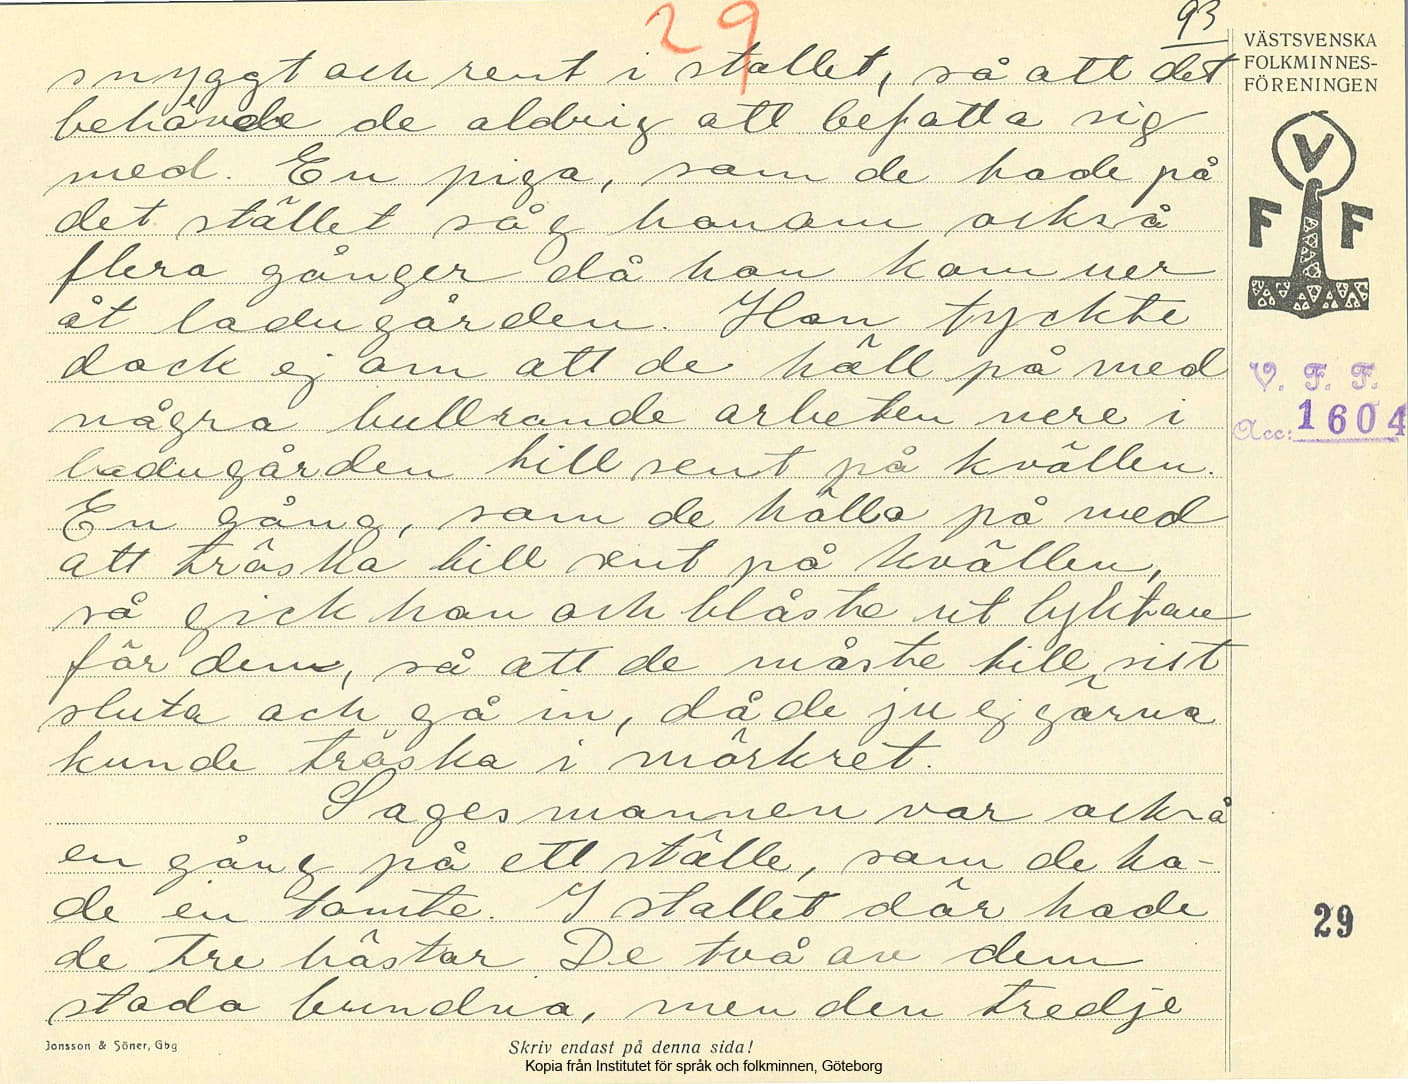 29
93
snyggt och rent i stallet, så att det
behövde de aldrig att befatta sig
med. En piga, som de hade på
det stället såg honom också
flera gånger då hon kom ner
åt ladugården. Han tyckte
dock ej om att de höll på med
några bullrande arbeten nere i
ladugården till sent på kvällen.
En gång, som de hölla på med
att tröska till sent på kvällen,
så gick han och blåste ut lyktan
för dem, så att de måste till sist
sluta och gå in, då de ju ej gärna
kunde tröska i mörkret.
Sagesmannen var också
en gång på ett ställe, som de ha-
de en tomte. I stallet där hade
de tre hästar. De två av dem
stodo bundna, men den tredje
VÄSTSVENSKA
FOLKMINNES-
FÖRENINGEN
V
F F
V. F. F.
Acc: 1604
29
Jonsson & Söner, Gbg
Skriv endast på denna sida!
Kopia från Institutet för språk och folkminnen, Göteborg